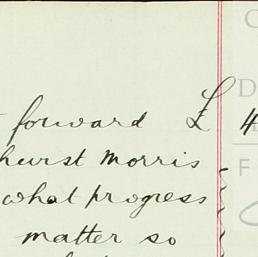 forward £ 4
hurst Morris
what progress
matter so